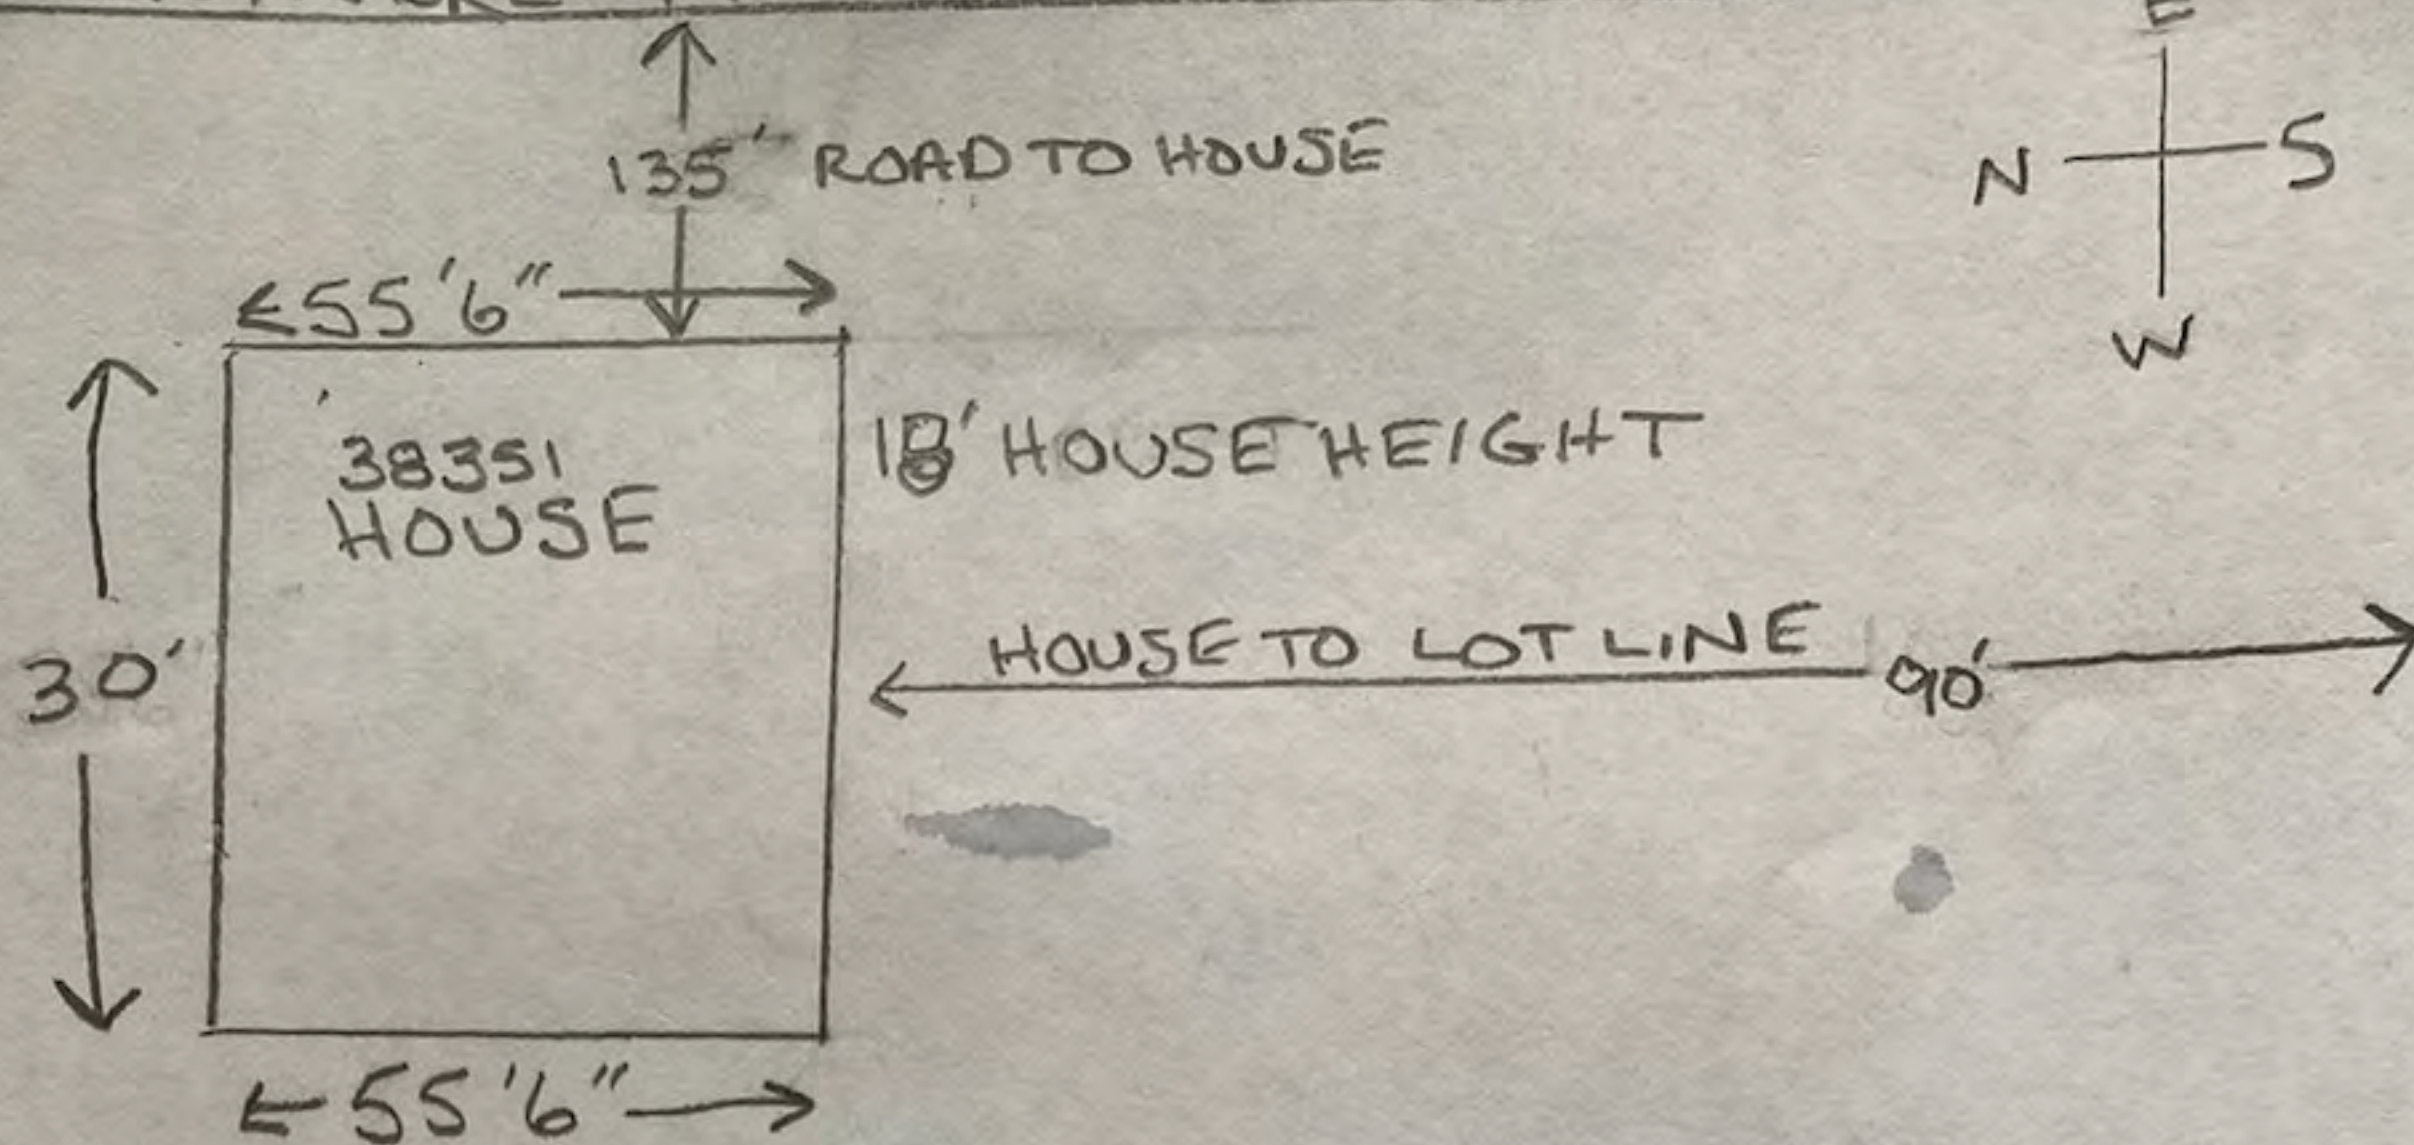 E
135' ROAD TO HOUSE
N S
W
55'6"
38351
HOUSE
18' HOUSE HEIGHT
30'
HOUSE TO LOT LINE 90'
55'6"